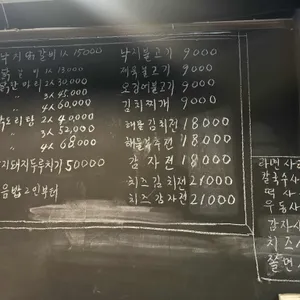 낙지볶갈비 1人 15000
닭갈비 1人 13000
2人 30,000
〃 3人 45,000
〃 4人 60,000
닭도리탕 2人 40,000
〃 3人 52,000
〃 4人 68,000
두루치기 50000
볶음밥 2인부터
낙지불고기 9000
제육불고기 9000
오징어불고기 9000
김치찌개 9000
해물김치전 18000
해물부추전 18000
감자전 18000
치즈김치전 21000
치즈감자전 21000
라면사리
칼국수사
떡사
우동사
감자사
치즈사
쫄면